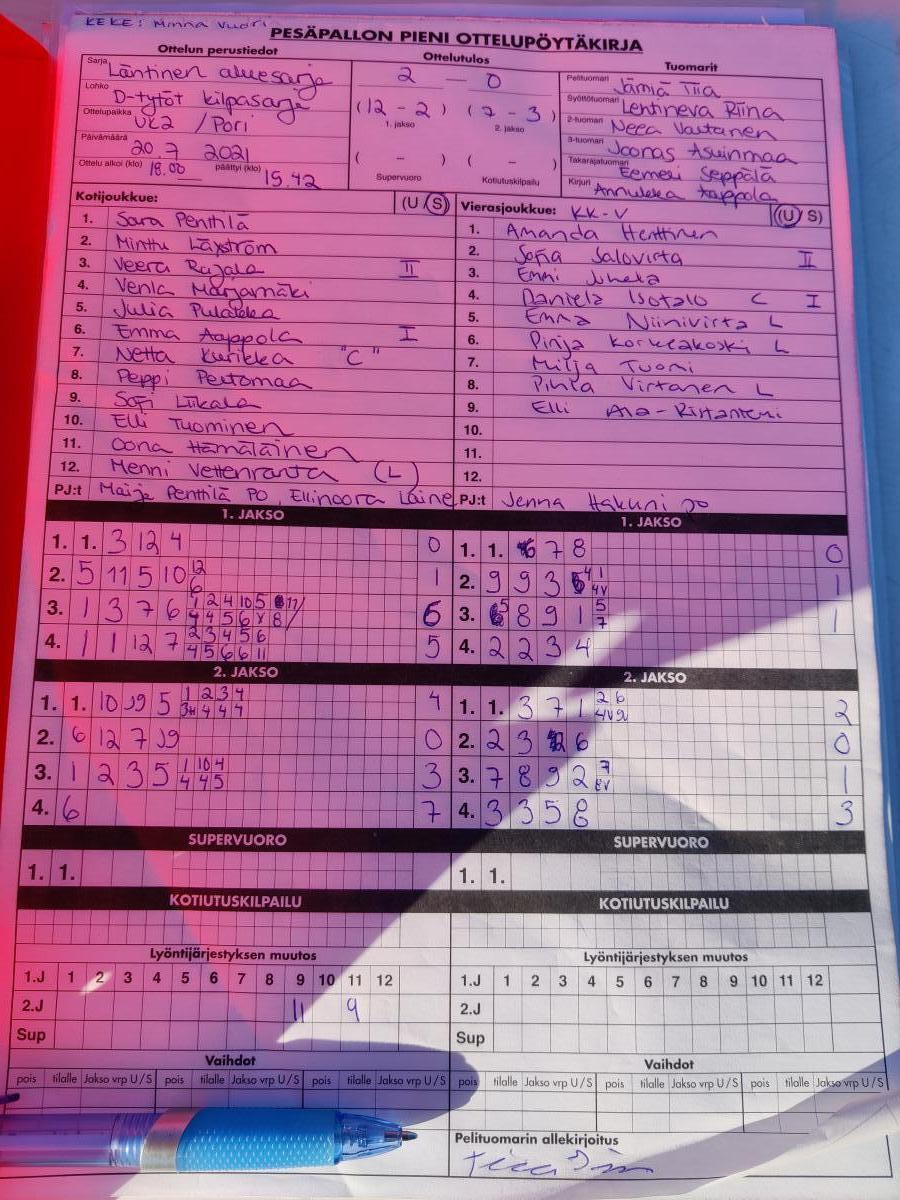 KEKE: Minna Vuori
PESÄPALLON PIENI OTTELUPÖYTÄKIRJA
Ottelun perustiedot
Sarja Läntinen aluesarja
Lohko D-tytöt kilpasarja
Ottelupaikka Uk2 / Pori
Päivämäärä 20.7 2021
Ottelu alkoi (klo) 18.00 päättyi (klo) 15.42
Ottelutulos
2 — 0
(12 - 2) (7 - 3)
1. jakso 2. jakso
( - ) ( - )
Supervuoro Kotiutuskilpailu
Tuomarit
Pelituomari Jämiä Tiia
Syöttötuomari Lehtineva Riina
2-tuomari Neea Vastanen
3-tuomari Joonas Asuinmaa
Takarajatuomari Eemeli Seppälä
Kirjuri Annukka Aappola
Kotijoukkue: (U / S)
1. Sara Penttilä
2. Minttu Laxström
3. Veera Rajala II
4. Venla Marjamäki
5. Julia Pulakka
6. Emma Aappola I
7. Netta Kurikka "C"
8. Peppi Peltomaa
9. Sofi Liikala
10. Elli Tuominen
11. Oona Hämäläinen
12. Henni Vettenranta (L)
PJ:t Maija Penttilä PO, Ellinoora Laine
Vierasjoukkue: KK-V (U / S)
1. Amanda Henttinen
2. Sofia Salovirta II
3. Emmi
4. Daniela Isotalo C I
5. Emma Niinivirta L
6. Pinja Korkeakoski L
7. Milja Tuomi
8. Pihla Virtanen L
9. Elli Ala-Ristaniemi
10.
11.
12.
PJ:t Jenna Hakuni po
1. JAKSO
1. 1. 3 12 4 0
2. 5 11 5 10 12 6 1
3. 1 3 7 6 1 2 4 10 5 11/ 4 4 5 6 Y 8 6
4. 1 1 12 7 2 3 4 5 6 4 5 6 6 11 5
2. JAKSO
1. 1. 10 19 5 1 2 3 4 3H 4 4 4 4
2. 6 12 7 19 0
3. 1 2 3 5 1 10 4 4 4 5 3
4. 6 7
SUPERVUORO
1. 1.
KOTIUTUSKILPAILU
1. JAKSO
1. 1. 6 7 8 0
2. 9 9 3 4 1 4V 1
3. 5 8 9 1 5 7 1
4. 2 2 3 4
2. JAKSO
1. 1. 3 7 1 2 6 4V 9 2
2. 2 3 2 6 0
3. 7 8 9 2 7 8V 1
4. 3 3 5 8 3
SUPERVUORO
1. 1.
KOTIUTUSKILPAILU
Lyöntijärjestyksen muutos
1.J 1 2 3 4 5 6 7 8 9 10 11 12
2.J 11 9
Sup
Vaihdot
pois tilalle Jakso vrp U/S pois tilalle Jakso vrp U/S pois tilalle Jakso vrp U/S
Lyöntijärjestyksen muutos
1.J 1 2 3 4 5 6 7 8 9 10 11 12
2.J
Sup
Vaihdot
pois tilalle Jakso vrp U/S pois tilalle Jakso vrp U/S pois tilalle Jakso vrp U/S
Pelituomarin allekirjoitus